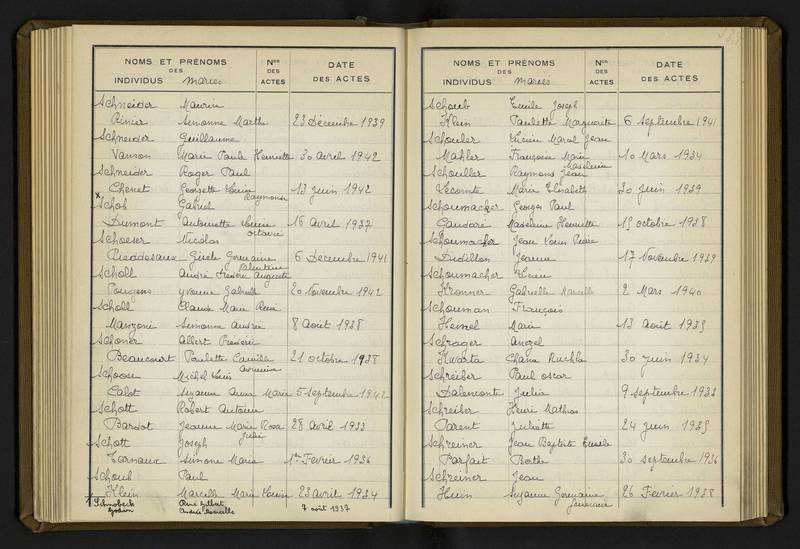 NOMS ET PRÉNOMS DES INDIVIDUS mariés | Nos DES ACTES | DATE DES ACTES
Schneider Maurice
Rinier Simonne Marthe 23 Décembre 1939
Schneider Guillaume
Vanson Marie Paule Henriette 30 avril 1942
Schneider Roger Paul
Chenet Georgette Louise Raymonde 13 juin 1942
x Schob Gabriel
Dumont Antoinette Louise Octavie 16 avril 1937
Schoeser Nicolas
Pieddesaux Gisèle Germaine Valentine 6 Décembre 1941
Scholl André Frédéric Auguste
Pougens Yvonne Gabrielle 20 Novembre 1942
Scholl Claude Marie René
Manzoni Simonne Andrée 8 Août 1938
Schoner Albert Frédéric
Beaucourt Paulette Camille 21 octobre 1938
Schoose Michel Louis
Calot Suzanne Anna Marie 5 septembre 1942
Schott Robert Antoine
Bardot Jeanne Marie Rosa 28 avril 1933
Schott Joseph
Ternaux Simone Marie 1er Février 1936
Schoub Paul
Klein Marcelle Marie Louise 23 avril 1934
x Schnobeck Albert
André 7 août 1937
NOMS ET PRÉNOMS DES INDIVIDUS mariés | Nos DES ACTES | DATE DES ACTES
Schoub Emile Joseph
Klein Paulette Marguerite 6 Septembre 1941
Schouler Lucien Marcel Jean
Mahler Françoise Marie Madeleine 10 Mars 1934
Schouller Raymond Jean
Lecomte Marie Elisabeth 30 juin 1939
Schoumacker Georges Paul
Gaudaré Madeleine Henriette 15 octobre 1938
Schoumacher Jean Louis Pierre
Didillon Jeanne 17 Novembre 1939
Schoumacher Lucien
Kronner Gabrielle Marcelle 2 Mars 1940
Schouman François
Heinel Marie 13 Août 1935
Schrager Angel
Kwarta Chana Ruchla 30 juin 1934
Schreiber Paul Oscar
Dalencont Julia 9 septembre 1933
Schreiber Henri Mathias
Parent Juliette 24 juin 1935
Schreiner Jean Baptiste Emile
Parfait Berthe 30 septembre 1936
Schreiner Jean
Huin Suzanne Germaine Geneviève 26 Février 1938